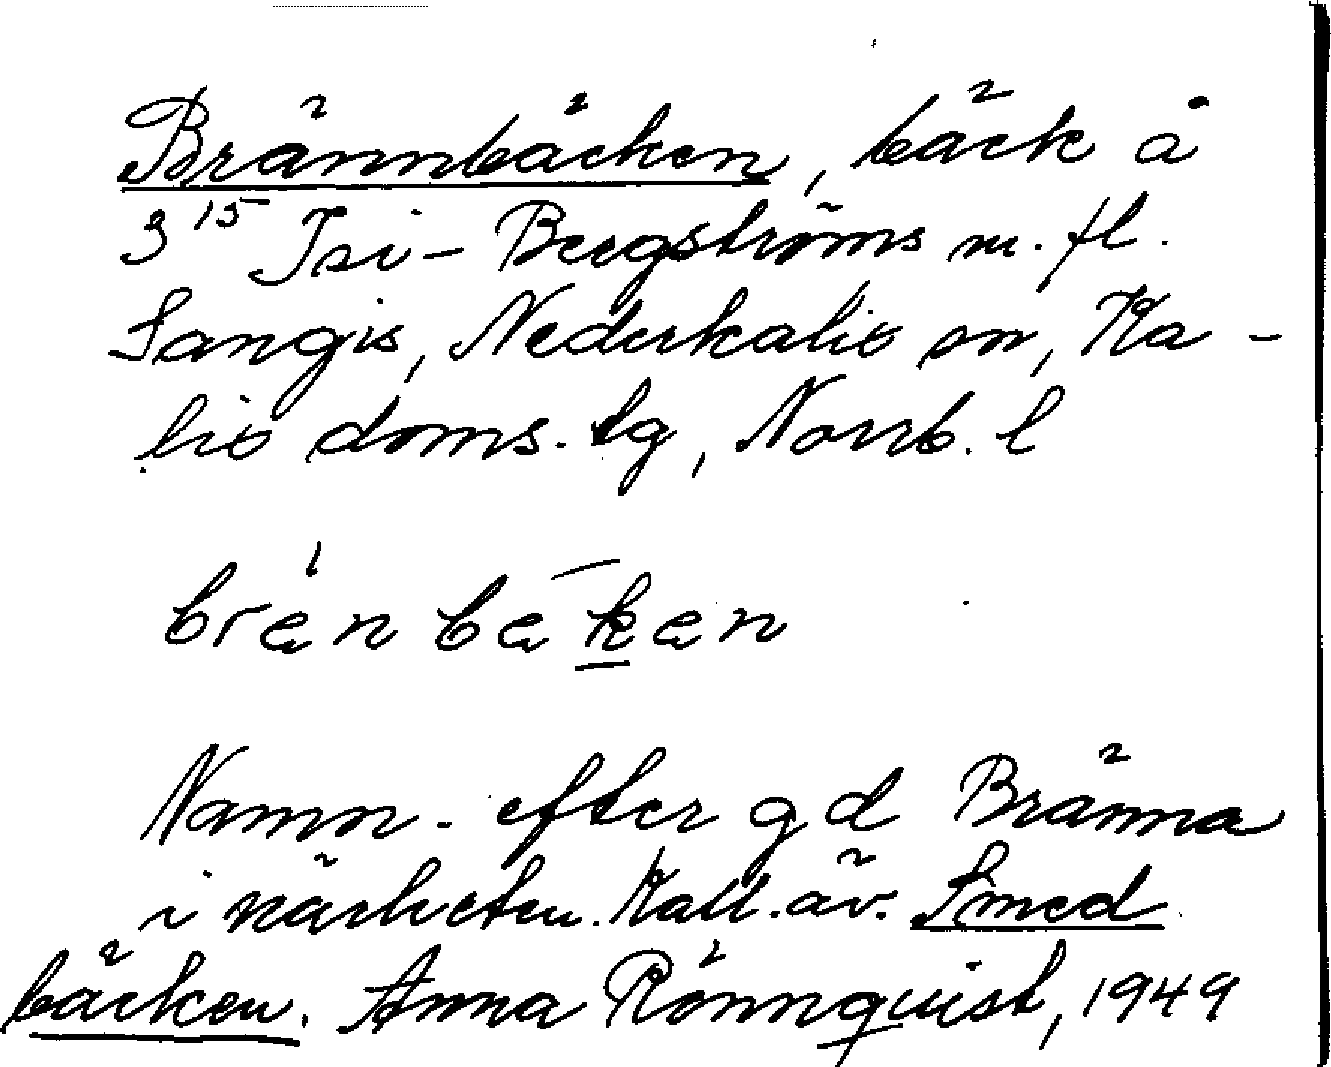 Brännbäcken, bäck å
3¹⁵ Isi-Bergströms m. fl.
Sangis, Nederkalix sn, Ka-
lix doms. lg, Norrb. l
Namn. efter gd Bränna
i närheten. Kall. äv. Smed
bäcken. Anna Rönnquist, 1949